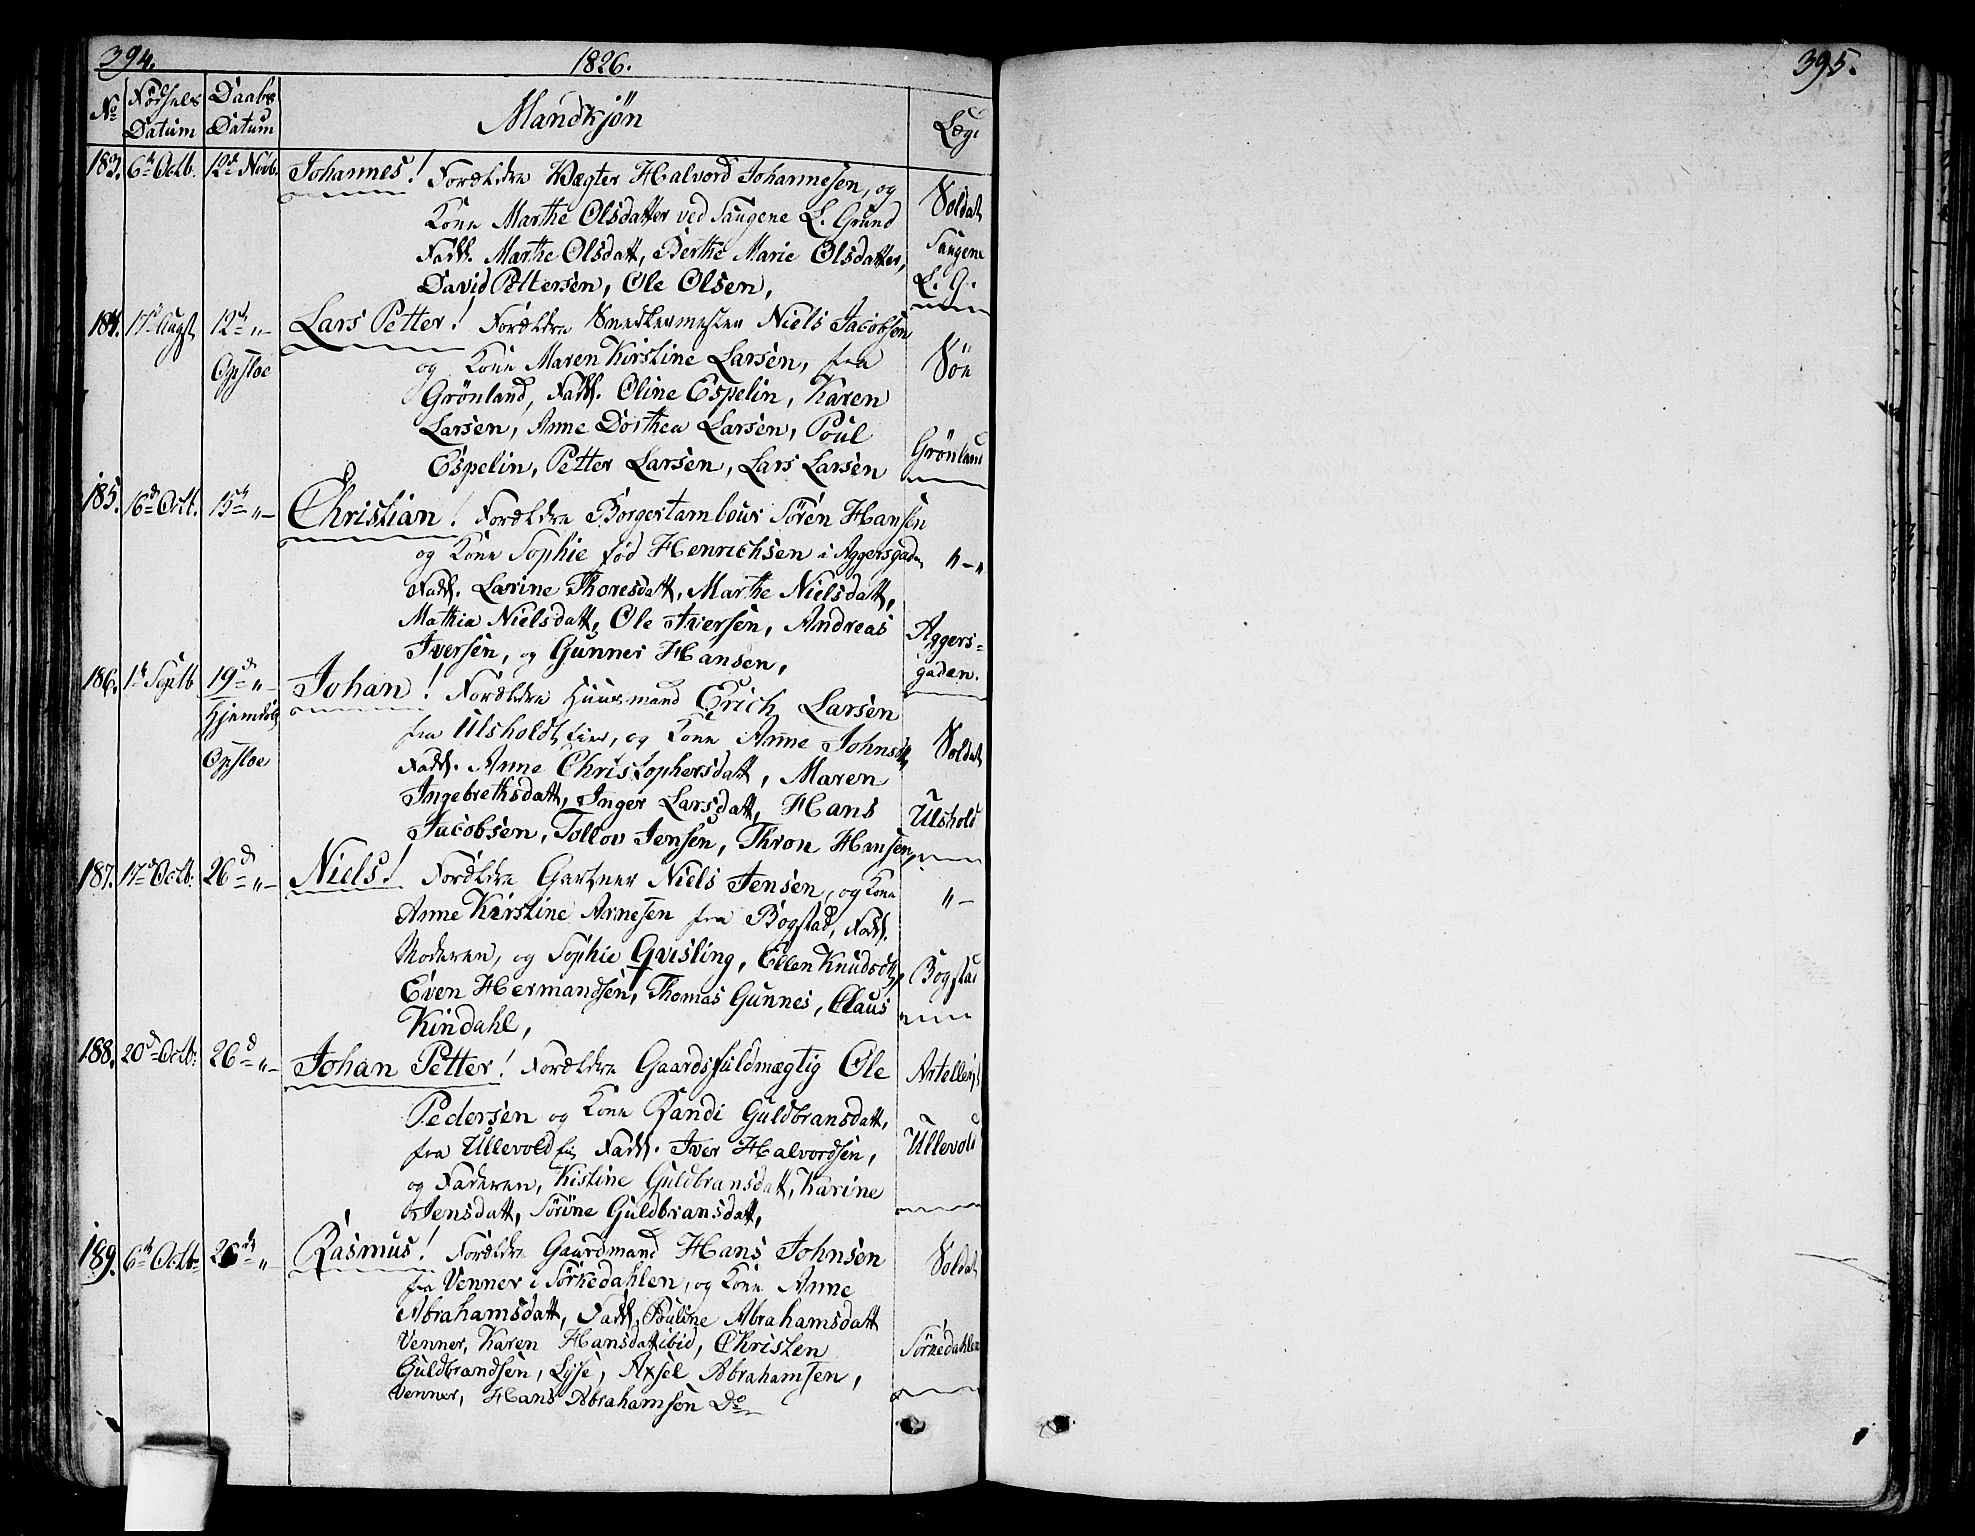 394.
1826.
395.
No Födsels Datum Daabs Datum Mandkjön Læg
183. 6te Octb. 12te Novb. Johannes! Forældre Vægter Halvord Johannesen, og
Kone Marthe Olsdatter ved Saugene L. Grund
Fadd. Marthe Olsdatt, Berthe Marie Olsdatter,
David Pettersen, Ole Olsen,
Soldat
Saugene
L. G.
184. 17de Augst 12te " - Opsloe
Lars Petter! Forældre Snedkermester Niels Jacobsen
og Kone Maren Kirstine Larsen, fra
Grönland, Fadd. Oline Espelin, Karen
Larsen, Anne Dorthea Larsen, Poul
Espelin, Petter Larsen, Lars Larsen
Söe
Grönland
185. 16de Oct. 15te " -
Christian! Forældre Borgertambour Sören Hansen
og Kone Sophie fød Henrichsen i Aggersgaden
Fadd. Larine Thoresdatt, Marthe Nielsdatt,
Mathia Nielsdatt, Ole Iversen, Andreas
Iversen, og Gunner Hansen,
" - "
Aggers-
gaden.
186. 1te Septb 19de " - Hjemdöbt Opsloe
Johan! Forældre Huusmand Erich Larsen
fra Ulsholdt eier, og Kone Anne Johnsdtt,
Fadd. Anne Christophersdatt, Maren
Ingebrethsdatt, Inger Larsdatt, Hans
Jacobsen, Tollov Jensen, Thron Hansen,
Soldat
Ulshold
187. 17de Octb. 26de " -
Niels! Forældre Gartner Niels Jensen, og Kone
Anne Kirstine Arnesen fra Bogstad, Fadd.
Moderen, og Sophie Qvisling, Ellen Knudsdtt,
Even Hermandsen, Thomas Gunnes, Claus
Kindahl,
" -
Bogstad
188. 20de Octb. 26de " -
Johan Petter! Forældre Gaardsfuldmægtig Ole
Pedersen og Kone Randi Guldbransdatt,
fra Ullevold Fadd. Iver Halvordsen,
og Faderen, Kistine Guldbransdatt, Karine
Jensdatt, Sörine Guldbransdatt,
Artellerist
Ullevold
189. 6te Octb. 26de "
Rasmus! Forældre Gaardmand Hans Johnsen
fra Venner i Sörkedahlen, og Kone Anne
Abrahamsdatt, Fadd. Pouline Abrahamsdatt
Venner, Karen Hansdatt ibid, Christen
Guldbrandsen, Lyse, Axsel Abrahamsen,
Venner, Hans Abrahamsen Do
Soldat
Sörkedahlen